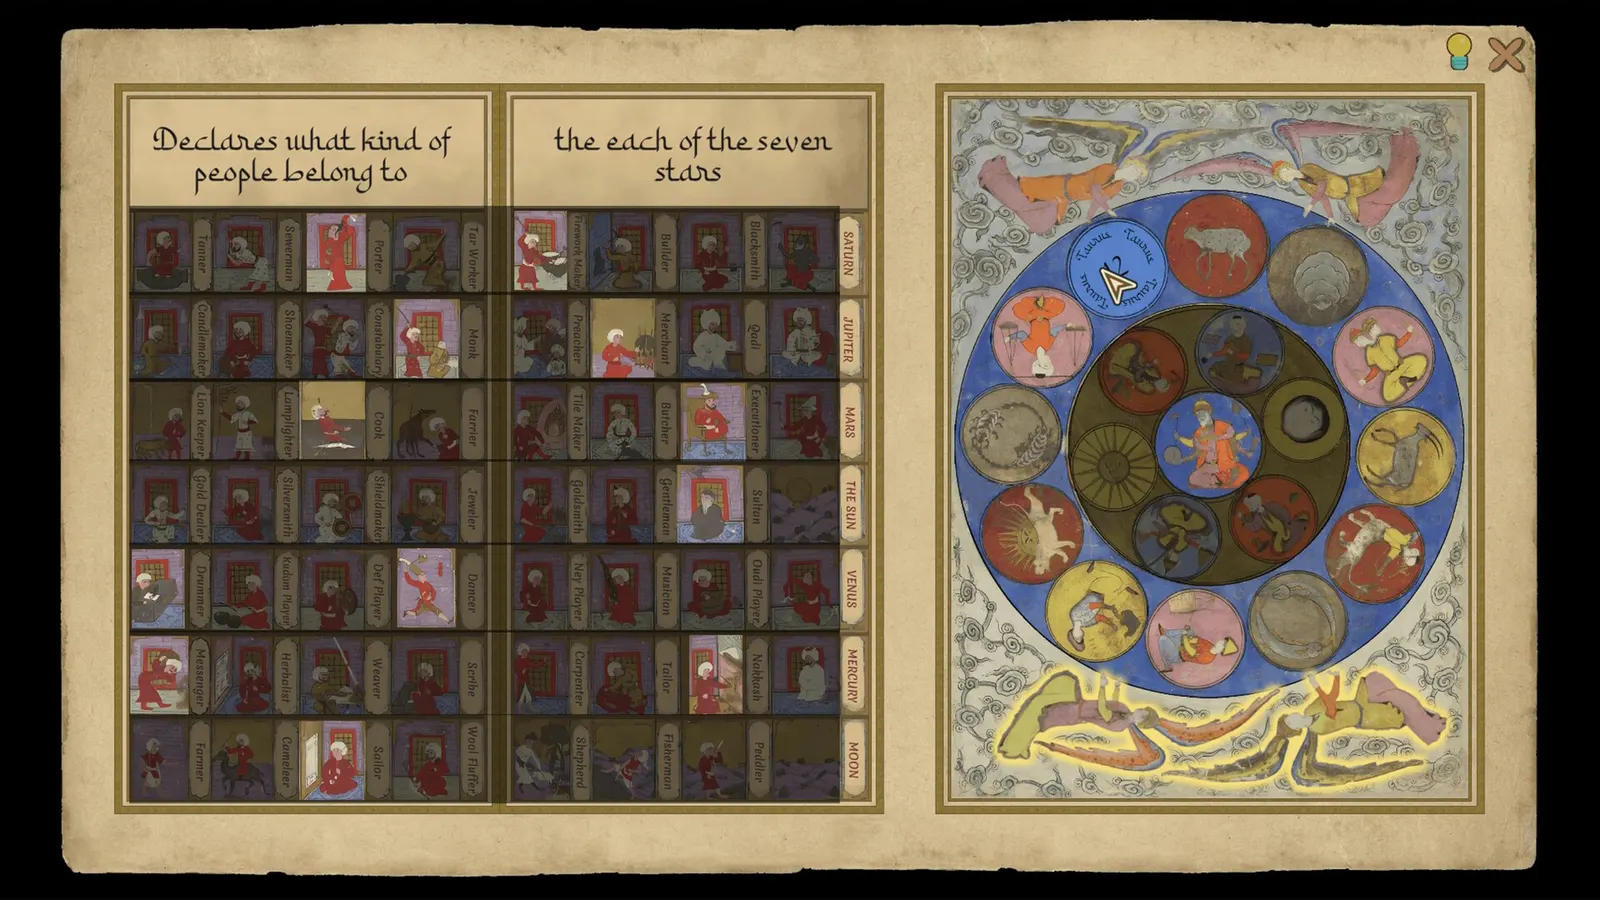 Declares what kind of
people belong to
the each of the seven
stars
Tanner
Sewerman
Porter
Tar Worker
Firework Maker
Builder
Blacksmith
SATURN
Candlemaker
Shoemaker
Constabulary
Monk
Preacher
Merchant
Qadi
JUPITER
Lion Keeper
Lamplighter
Cook
Farrier
Tile Maker
Butcher
Executioner
MARS
Gold Dealer
Silversmith
Shieldmaker
Jeweler
Goldsmith
Gentleman
Sultan
THE SUN
Drummer
Kudüm Player
Def Player
Dancer
Ney Player
Musician
Oudi Player
VENUS
Messenger
Herbalist
Weaver
Scribe
Carpenter
Tailor
Nakkash
MERCURY
Farmer
Cameleer
Sailor
Wool Fluffer
Shepherd
Fisherman
Peddler
MOON
Taurus Taurus
Taurus Taurus